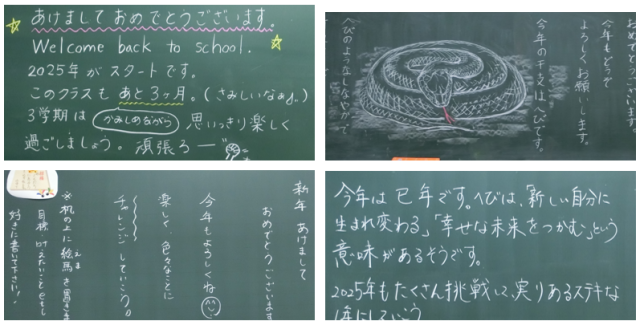 あけましておめでとうございます。
Welcome back to school.
2025年がスタートです。
このクラスもあと3ヶ月。(さみしいなぁ)
3学期は かみしめながら 思いっきり楽しく
過ごしましょう。頑張ろー
おめでとうございます
今年もどうぞ
よろしくお願いします。
今年の干支は、へびです。
へびのようなしなやかで
新年 あけまして
おめでとうございます
今年もよろしくね
楽しく、色々なことに
チャレンジしていこう。
※机の上に絵馬を置きます
えま
目標、叶えたいことなどを
好きに書いて下さい!
今年は巳年です。へびは、「新しい自分に
生まれ変わる」「幸せな未来をつかむ」という
意味があるそうです。
2025年もたくさん挑戦して、実りあるステキな
1年にしていこう